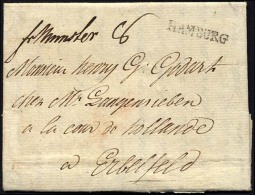 fr Munster 6
HAMBURG
Monsieur henry G: Godart
chez Mr Langensieben
a la cour de hollande
a Erbelfeld